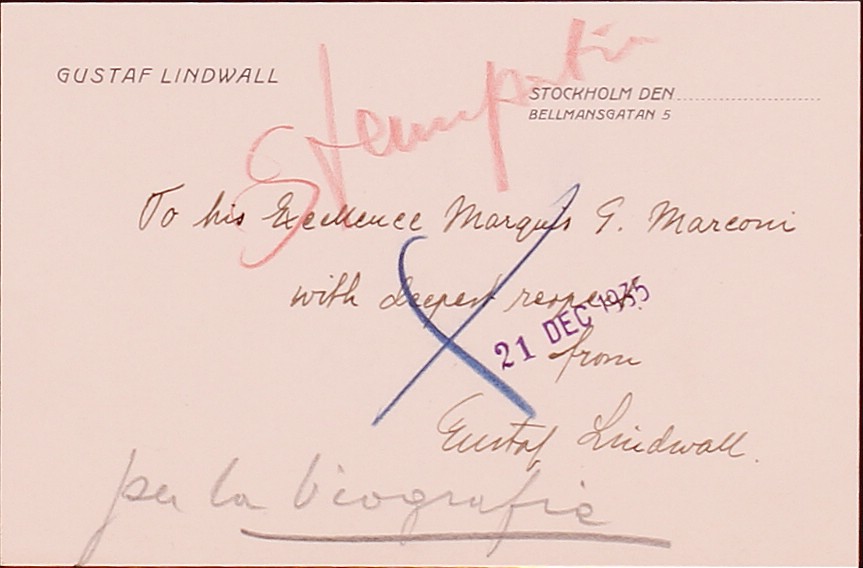 GUSTAF LINDWALL
STOCKHOLM DEN
BELLMANSGATAN 5
To his Excellence Marquis G. Marconi
with deepest respect
21 DEC 1935
from
Gustaf Lindwall.
per la biografie